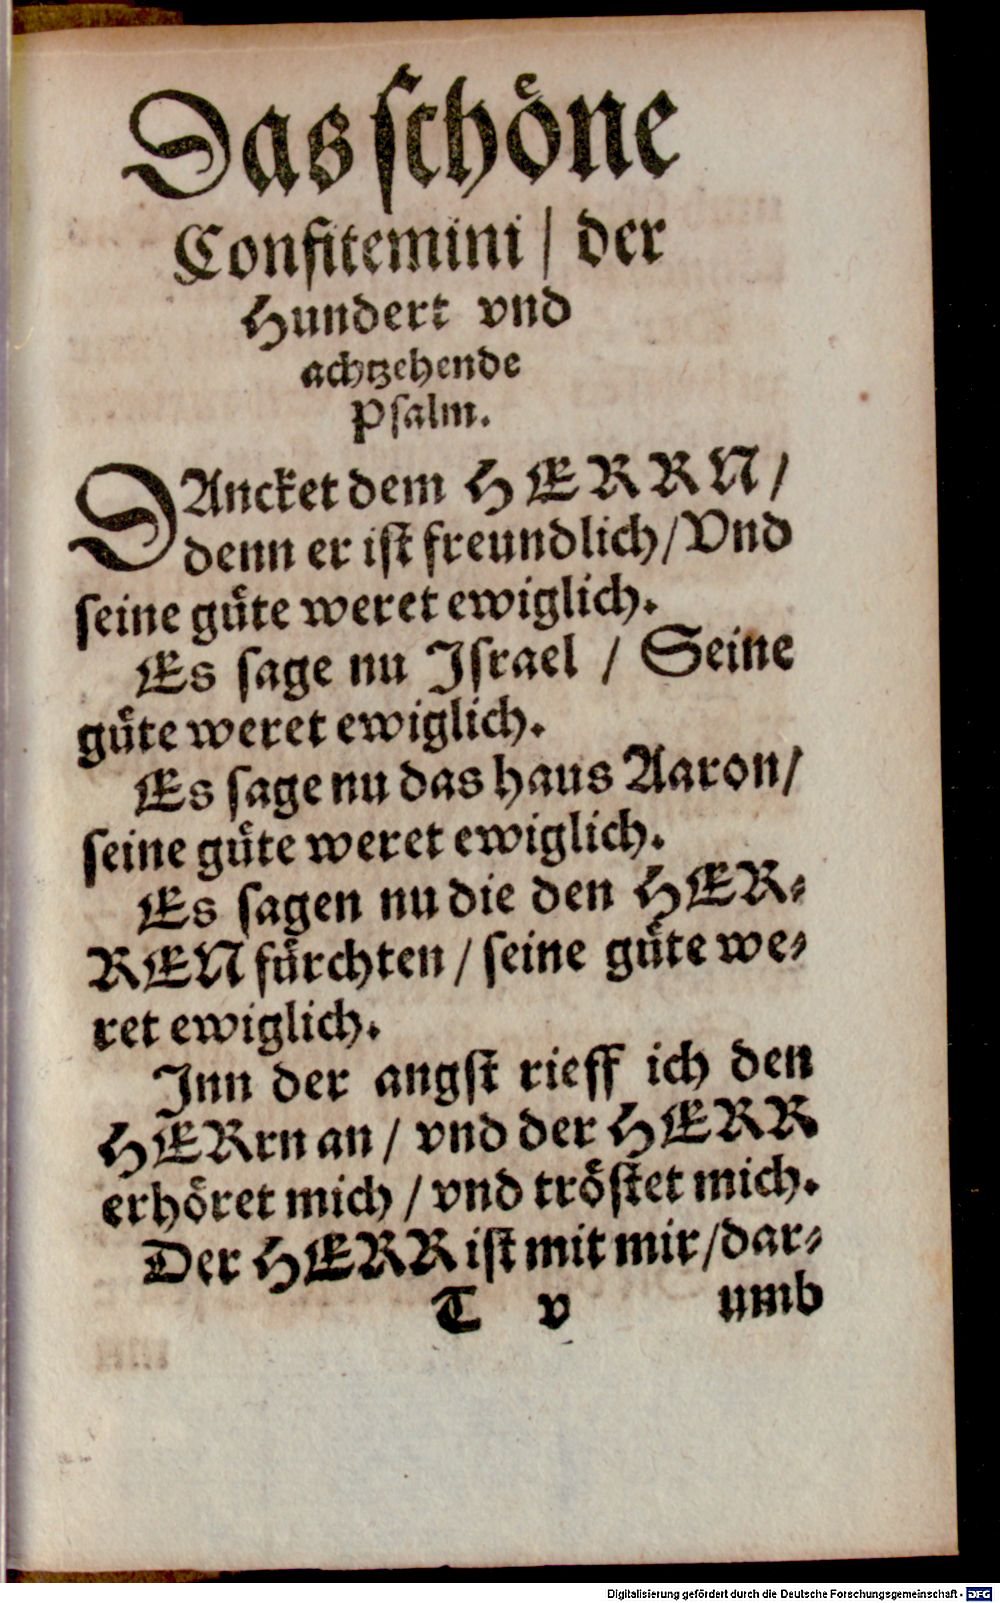 Das ſchoͤne
Confitemini / der
Hundert vnd
achtzehende
Pſalm.
DAncket dem HERRN /
denn er iſt freundlich / Vnd
ſeine guͤte weret ewiglich.
Es ſage nu Jſrael / Seine
guͤte weret ewiglich.
Es ſage nu das haus Aaron /
ſeine guͤte weret ewiglich.
Es ſagen nu die den HER⸗
REN fuͤrchten / ſeine guͤte we⸗
ret ewiglich.
Jnn der angſt rieff ich den
HERrn an / vnd der HERR
erhoͤret mich / vnd troͤſtet mich.
Der HERR iſt mit mir / dar⸗
T v umb
Digitalisierung gefördert durch die Deutsche Forschungsgemeinschaft - DFG